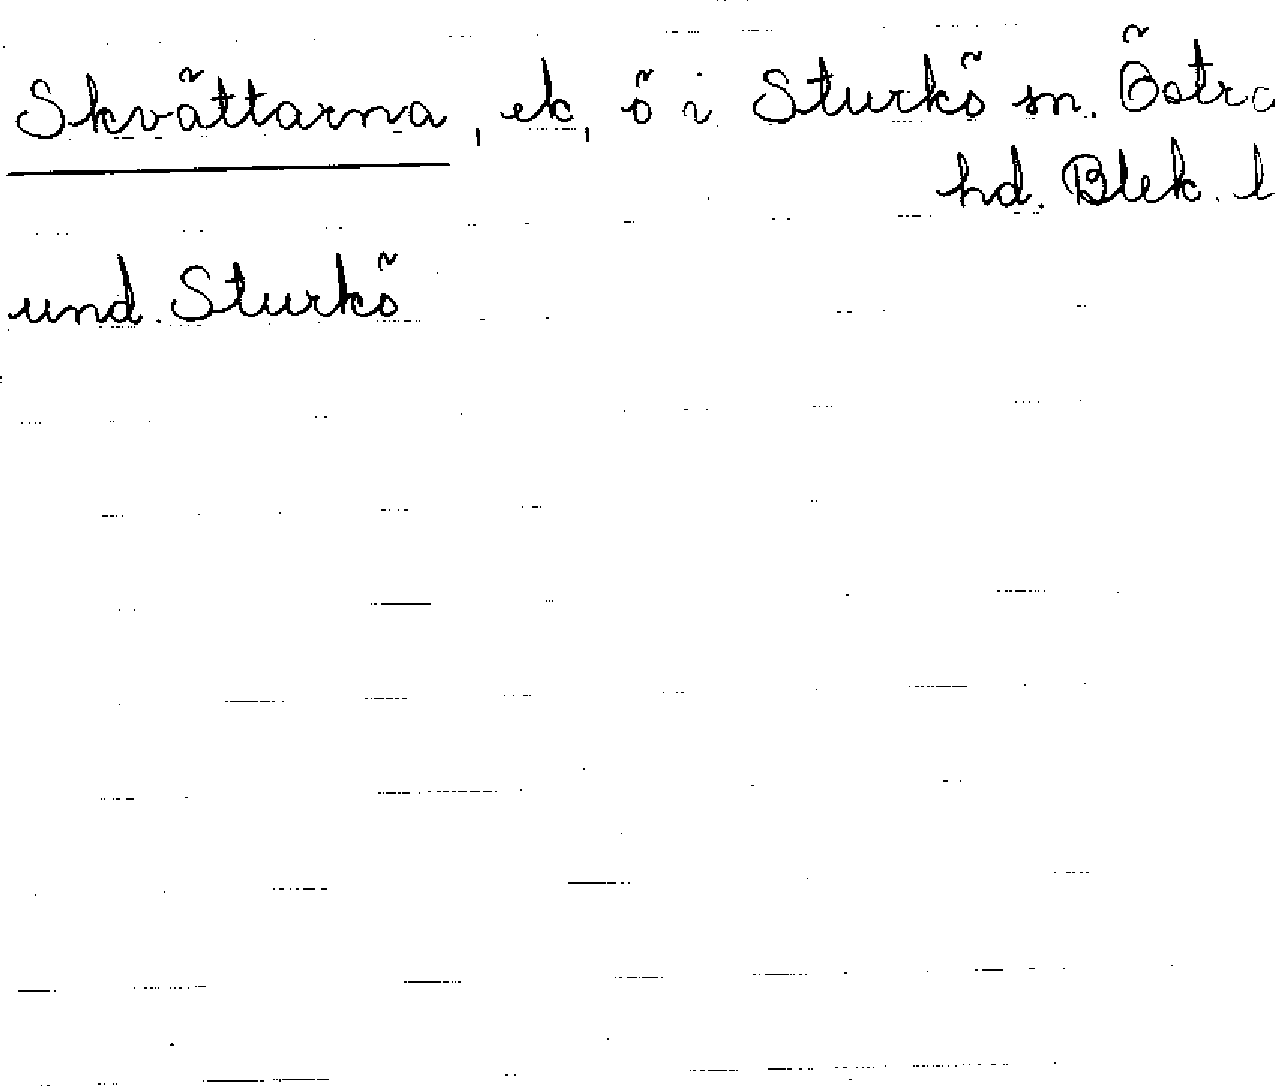 Skvättarna, ek, ö i Sturkö sn. Östra
hd. Blek. l
und. Sturkö